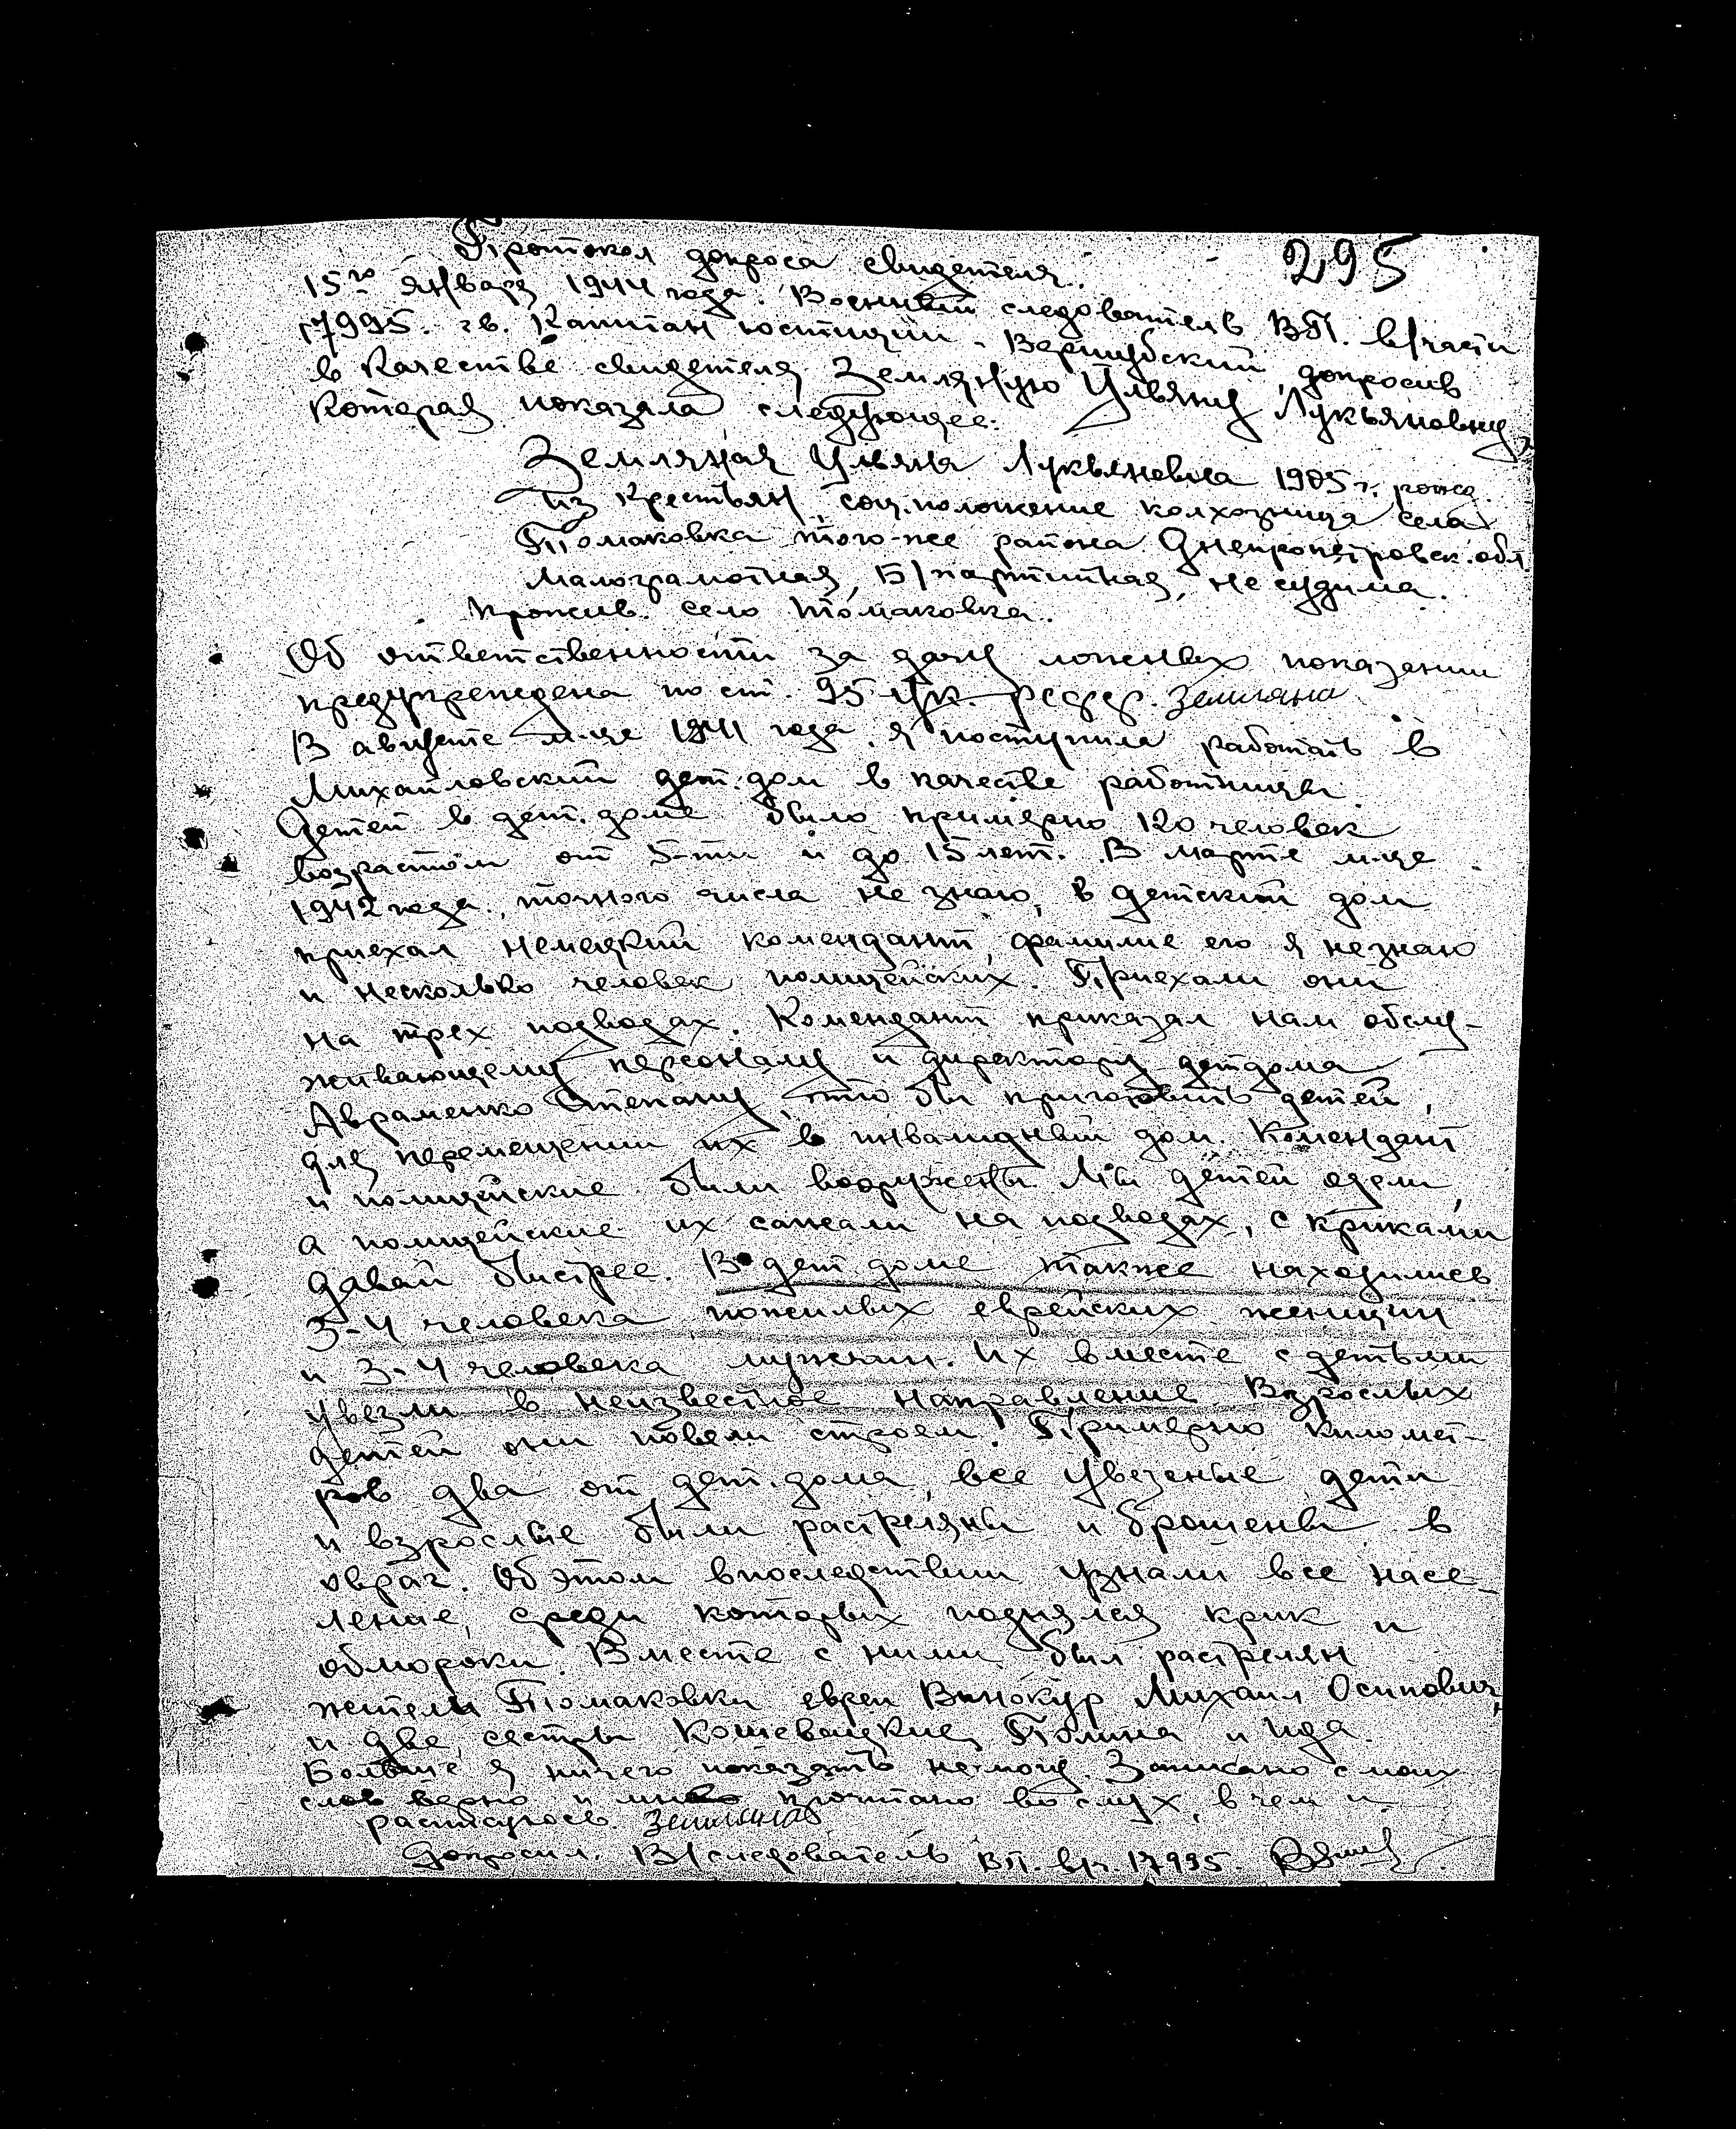 Протокол допроса свидетеля.
295
15го января 1944 года. Военный следователь ВП. в/части
17995. гв. Капитан юстиции - Вершубский, допросив
в качестве свидетеля Земляную Ульяну Лукьяновну,
Которая показала следующее.
Земляная Ульяна Лукьяновна 1905 г. рожд.
из крестьян, соц. положение колхозница села
Томаковка того-же района Днепропетровск. обл.
малограмотная, Б/партийная, не судима.
прожив. село Томаковка.
Об ответственности за дачу ложных показании
предупреждена по ст. 95 УК. РСФСР. Земляна
В августе м-це 1941 года. я поступила работать в
Михайловский дет. дом в качестве работницы.
Детей в дет. доме было примерно 120 человек
возрастом от 5-ти и до 15 лет. В марте м-це
1942 года., точного числа не знаю, в детский дом
приехал немецкий комендант, фамилие его я не знаю
и несколько человек полицейских. Приехали они
на трех подводах. Комендант приказал нам обслу-
живающему персоналу и директору детдома
Авраменко Степану, что бы приготовить детей,
для перемещении их в инвалидный дом. Комендант
и полицейские были вооружены. Мы детей одели,
а полицейские их сажали на подводах, с криками
давай быстрее. В дет. доме также находились
3-4 человека пожилых еврейских женщин
и 3-4 человека мужчин. Их вместе с детьми
увезли в неизвестное направление. Взрослых
детей они повели строем. Примерно километ-
ров два от дет. дома, все увезеные дети
и взрослые были растреляны и брошены в
овраг. Об этом впоследствии узнали все насе-
ление, среди которых поднялся крик и
обмороки. Вместе с ними был растрелян
жители Томаковки евреи Винокур Михаил Осипович,
и две сестры Кошевацкие, Полина и Ида.
Больше я ничего показать не могу. Записано с моих
слов верно и мне прочитано во слух, в чем и
растуюсь. Земляная
Допросил. В/следователь ВП. в/ч. 17995.